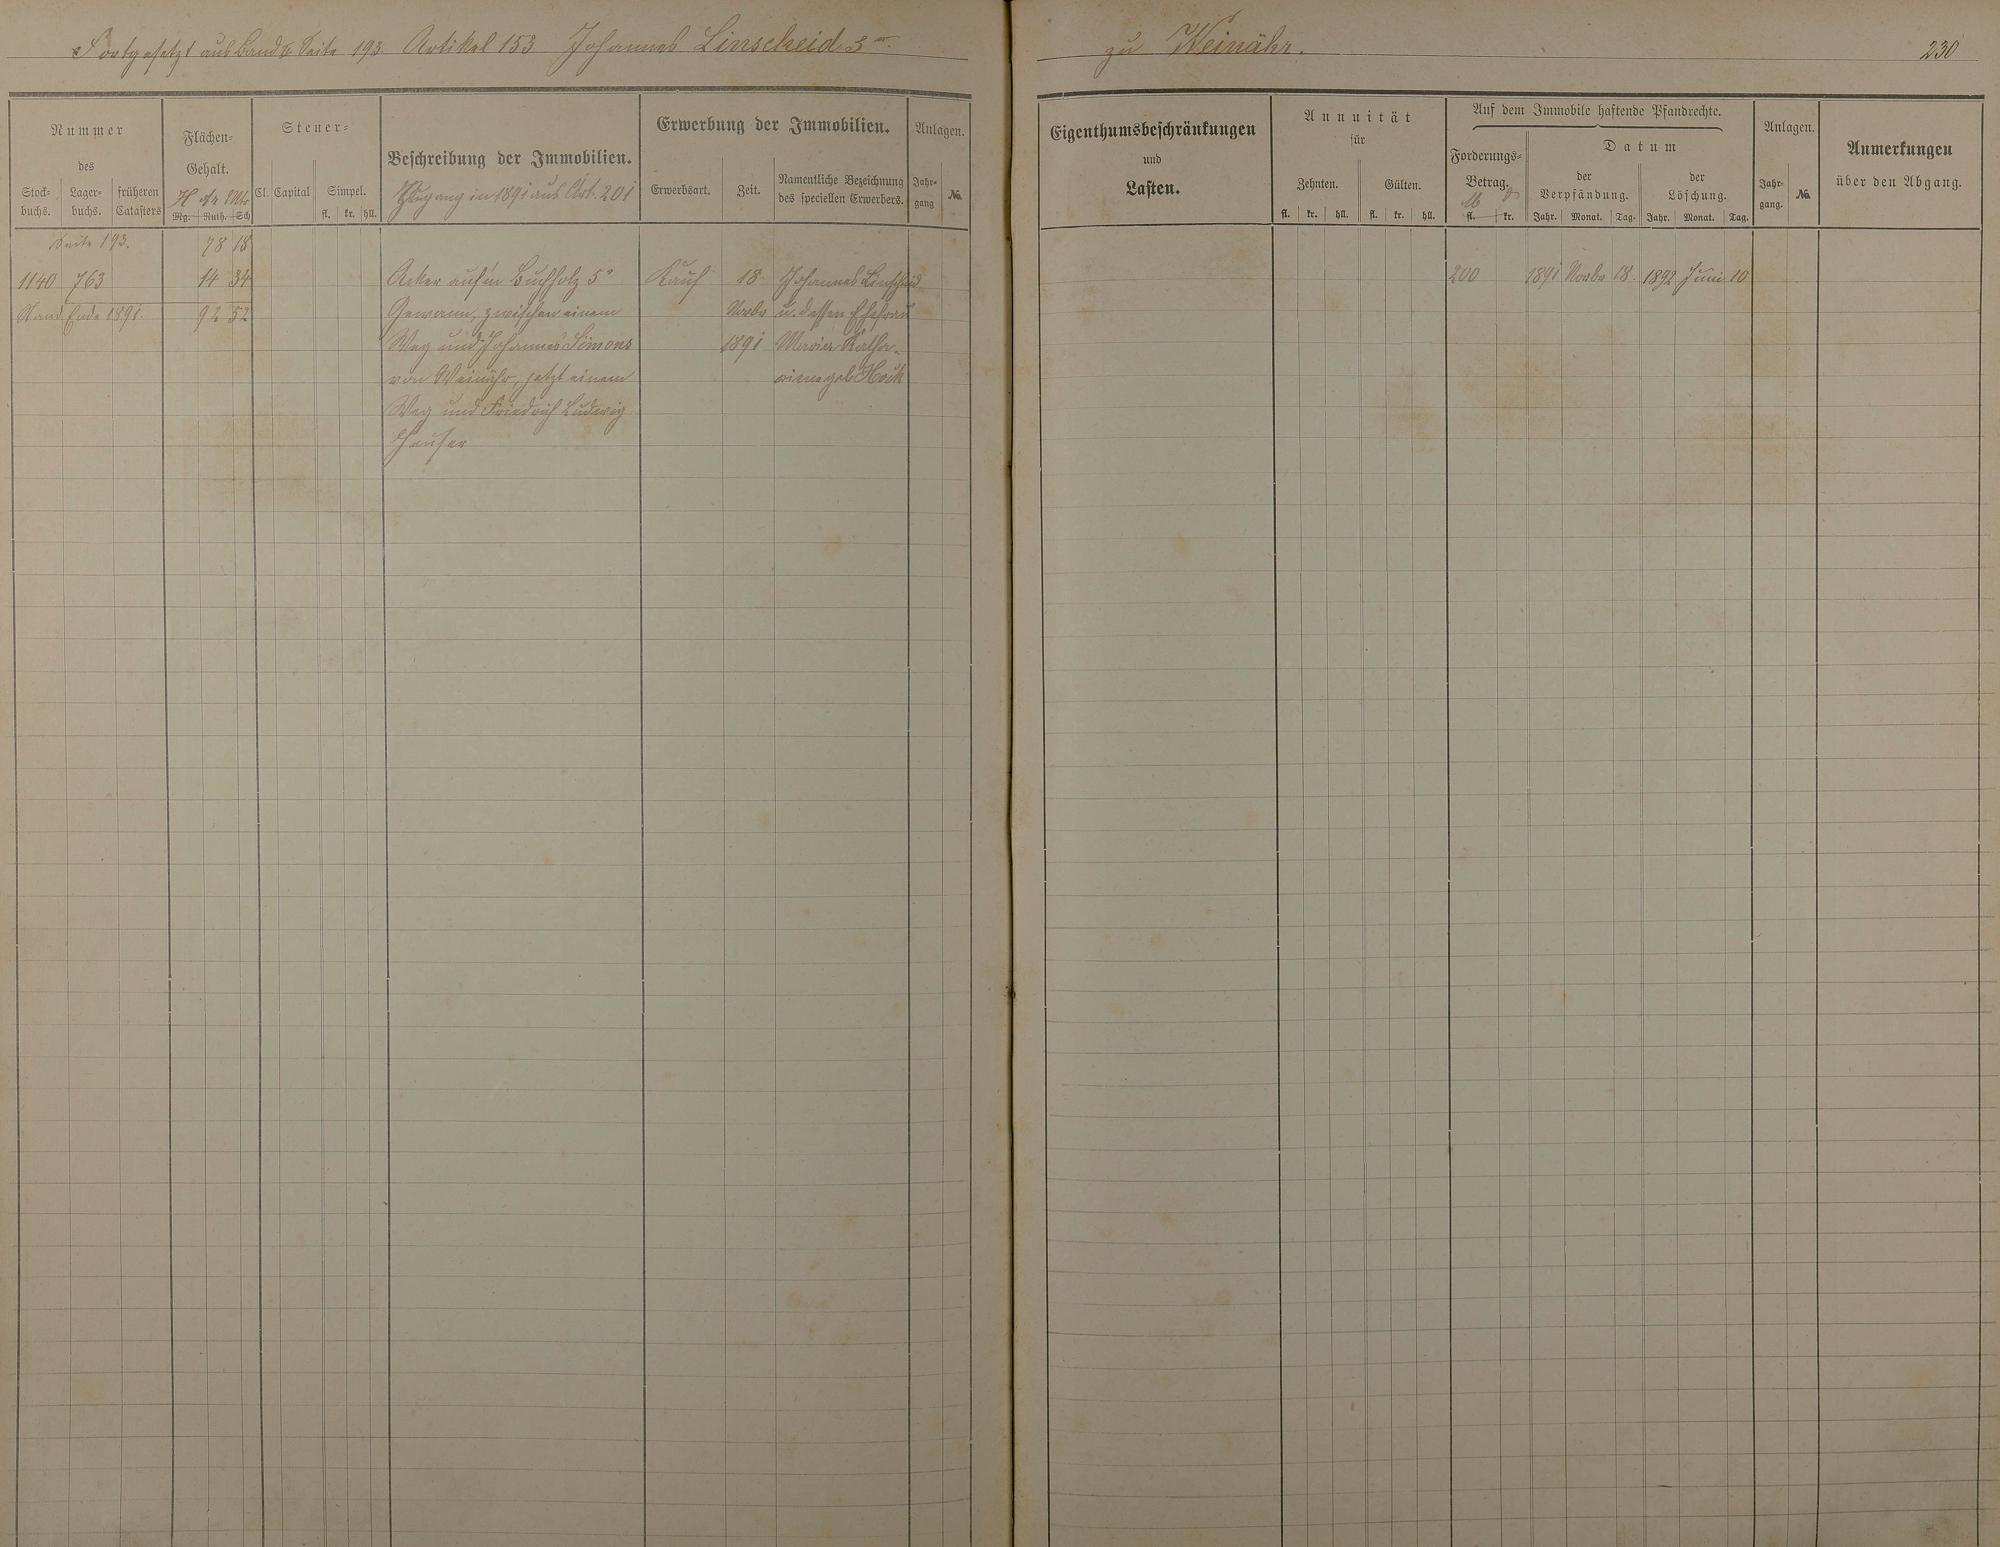 Fortgesetzt aus Band 6 Seite 193 Artikel 153 Johannes Linscheid 3r
zu Weinähr.
230
Nummer
des
Stock-
buchs.
Lager-
buchs.
früheren
Catasters
Flächen-
Gehalt.
H ar Mtr
Mg. Ruth. Sch
Steuer-
Cl. Capital
Simpel.
fl. kr. hll.
Beschreibung der Immobilien.
Zugang in 1891 aus Art. 201
Erwerbung der Immobilien.
Erwerbsart.
Zeit.
Namentliche Bezeichnung
des speciellen Erwerbers.
Anlagen.
Jahr-
gang
№.
Eigenthumsbeschränkungen
und
Lasten.
Annuität
für
Zehnten.
Gülten.
fl. kr. hll. fl. kr. hll.
Auf dem Immobile haftende Pfandrechte.
Forderungs-
Betrag.
fl. kr.
Datum
der
Verpfändung.
Jahr. Monat. Tag.
der
Löschung.
Jahr. Monat. Tag.
Anlagen.
Jahr-
gang.
№.
Anmerkungen
über den Abgang.
Seite 193. 78 18
1140 763 14 34 Acker auf'm Buchholz 5r Kauf 18. Johannes Linscheid 200 1891 Novbr 18. 1892 Juni 10
Stand Ende 1891. 92 52 Gewann, zwischen einem Novbr u. dessen Ehefrau
Weg und Johannes Simons 1891 Maria Katha-
von Weinähr, jetzt einem rina geb. Hock
Weg und Friedrich Ludwig
Hauser